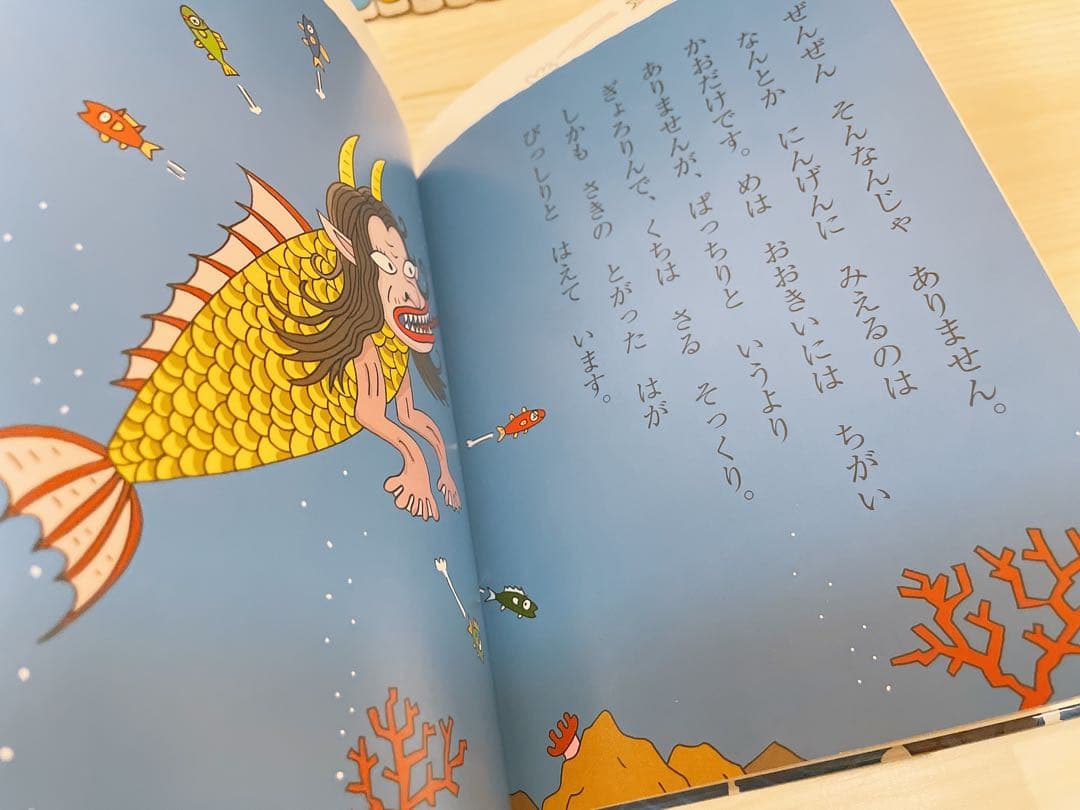 ぜんぜん そんなんじゃ ありません。
なんとか にんげんに みえるのは
かおだけです。 めは おおきいには ちがい
ありませんが、 ぱっちりと いうより
ぎょろりんで、 くちは さる そっくり。
しかも さきの とがった はが
びっしりと はえて います。